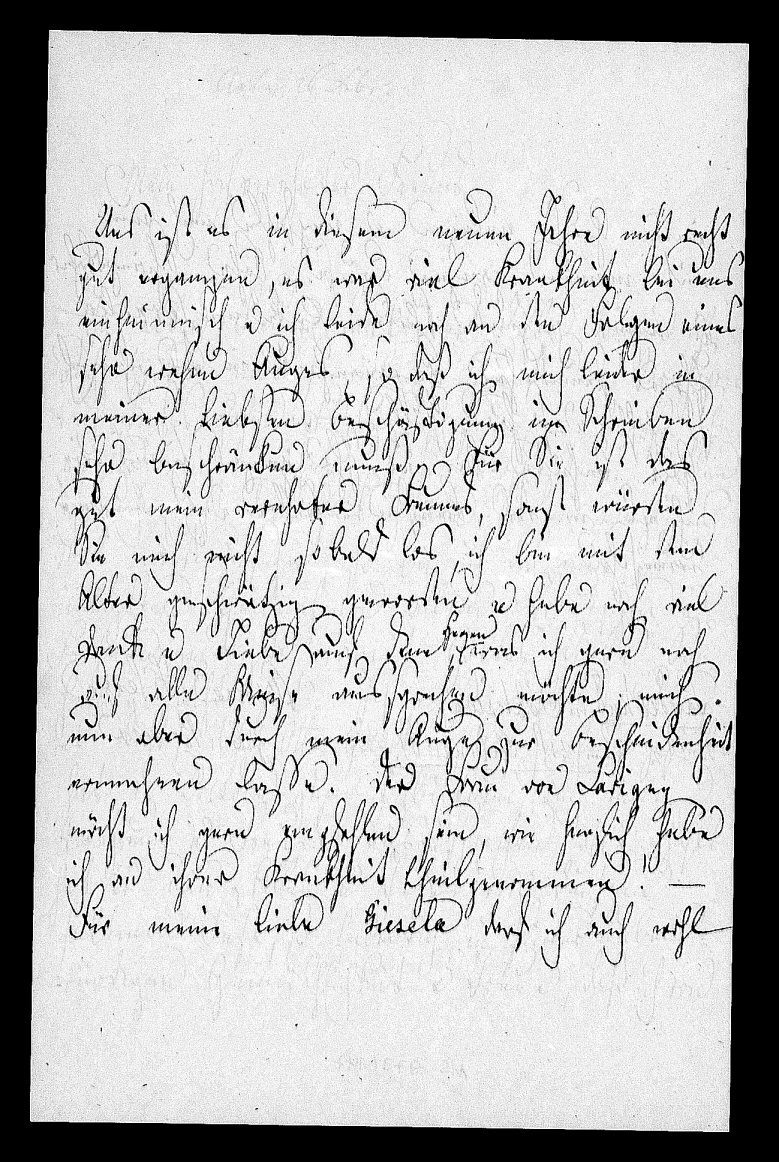 Uns ist es in diesem neuen Jahre nicht recht
gut ergangen, es war viel Krankheit bei uns
einheimisch u ich leide noch an den Folgen eines
sehr wehen Auges so daß ich mich leider in
meiner liebsten Beschäftigung im Schreiben
sehr beschränken muß. Für Sie ist das
gut mein verehrter Freund, sonst würden
Sie mich nicht sobald los, ich bin mit dem
Alter geschwätzig geworden u habe noch viel
Dank u Liebe auf dem Herzen was ich gern noch
auf alle Weise aussprechen möchte, mich
nun aber durch mein Auge zur Bescheidenheit
ermahnen lasse. Der Frau von
möcht ich gern empfohlen sein, wie herzlich habe
ich an ihrer Krankheit theilgenommen! —
Für meine liebe Gisela darf ich auch wohl